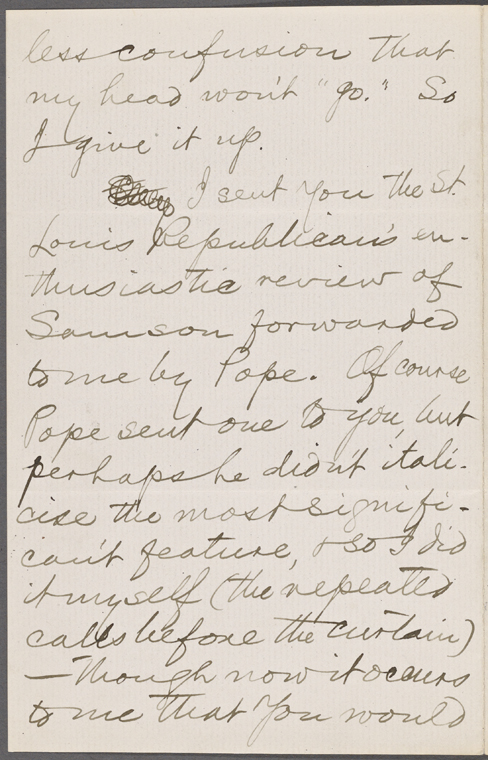 less confusion that
my head won't "go." So
I give it up.
I sent you the St.
Louis Republican's en-
thusiastic review of
Samson forwarded
to me by Pope. Of course
Pope sent one to you, but
perhaps he didn't itali-
cise the most signifi-
cant feature, & so I did
it myself (the repeated
calls before the curtain)
—though now it occurs
to me that you would